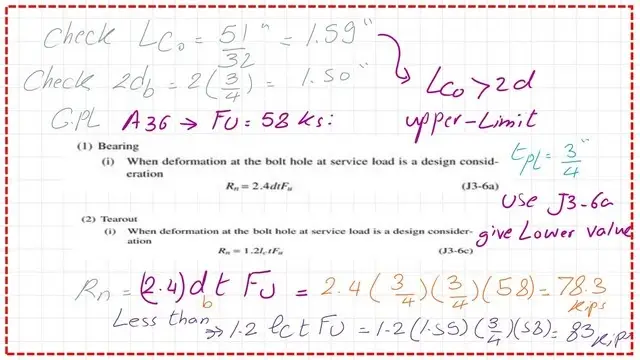 Check Lc₀ = 51"/32 = 1.59"
Check 2db = 2(3/4) = 1.50"
Lc₀ > 2d
G.PL A36 → FU = 58 ksi
upper-Limit
(1) Bearing
(i) When deformation at the bolt hole at service load is a design consid-
eration
Rn = 2.4dtFu (J3-6a)
tPL = 3"/4
use J3-6a
give Lower value
(2) Tearout
(i) When deformation at the bolt hole at service load is a design consider-
ation
Rn = 1.2lctFu (J3-6c)
Rn = (2.4) db t FU = 2.4 (3/4)(3/4)(58) = 78.3 Kips
Less than ⇒ 1.2 lc t FU = 1.2 (1.59)(3/4)(58) = 83 Kips